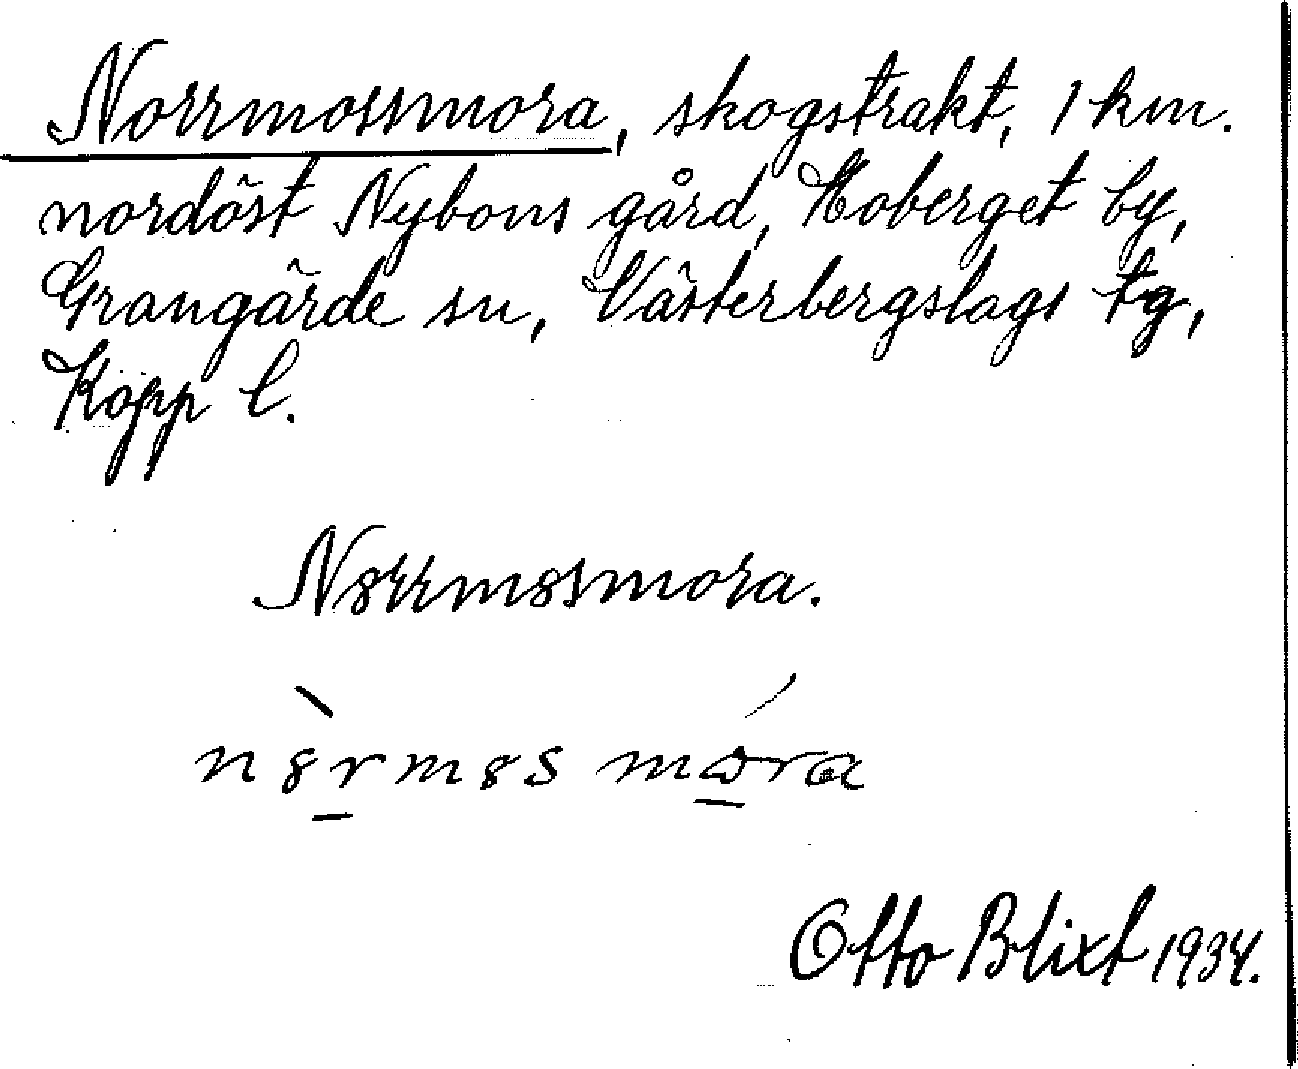 Norrmossmora, skogstrakt, 1 km.
nordöst Nybons gård, Moberget by,
Grangärde sn, Västerbergslags tg,
Kopp l.
N8rrm8smora.
n8rm8s mωra
Otto Blixt 1934.